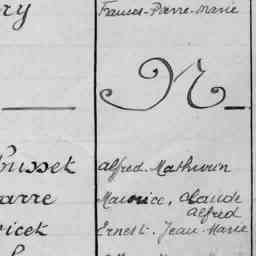 ry Frances-Pierre-Marie
N
ousset Alfred Mathurin
arre Maurice, Claude
Alfred
icet Ernest-Jean Marie